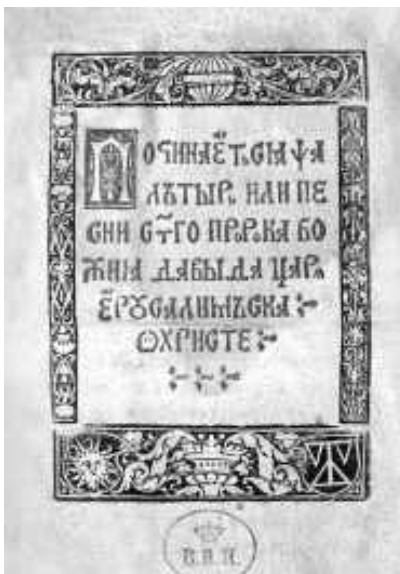 Починаеть сѧ ѱа
лътырь или пе
сни ст҃го пррока бо
жиꙗ давыда царѧ
ерꙋсалимъска
ѡхристе